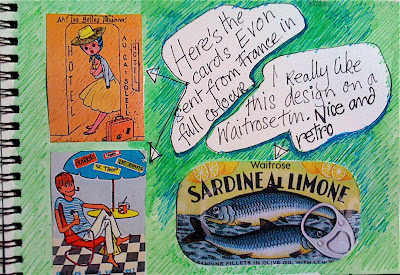 Ah! Les Belles
HOTEL
AU CA SOLEIL
HOTEL
Here's the
cards Evon
sent from France in
full colour
I Really like
this design on a
Waitrose tin. Nice and
retro
Waitrose
SARDINE AL LIMONE
SARDINE FILLETS IN OLIVE OIL WITH LEMON